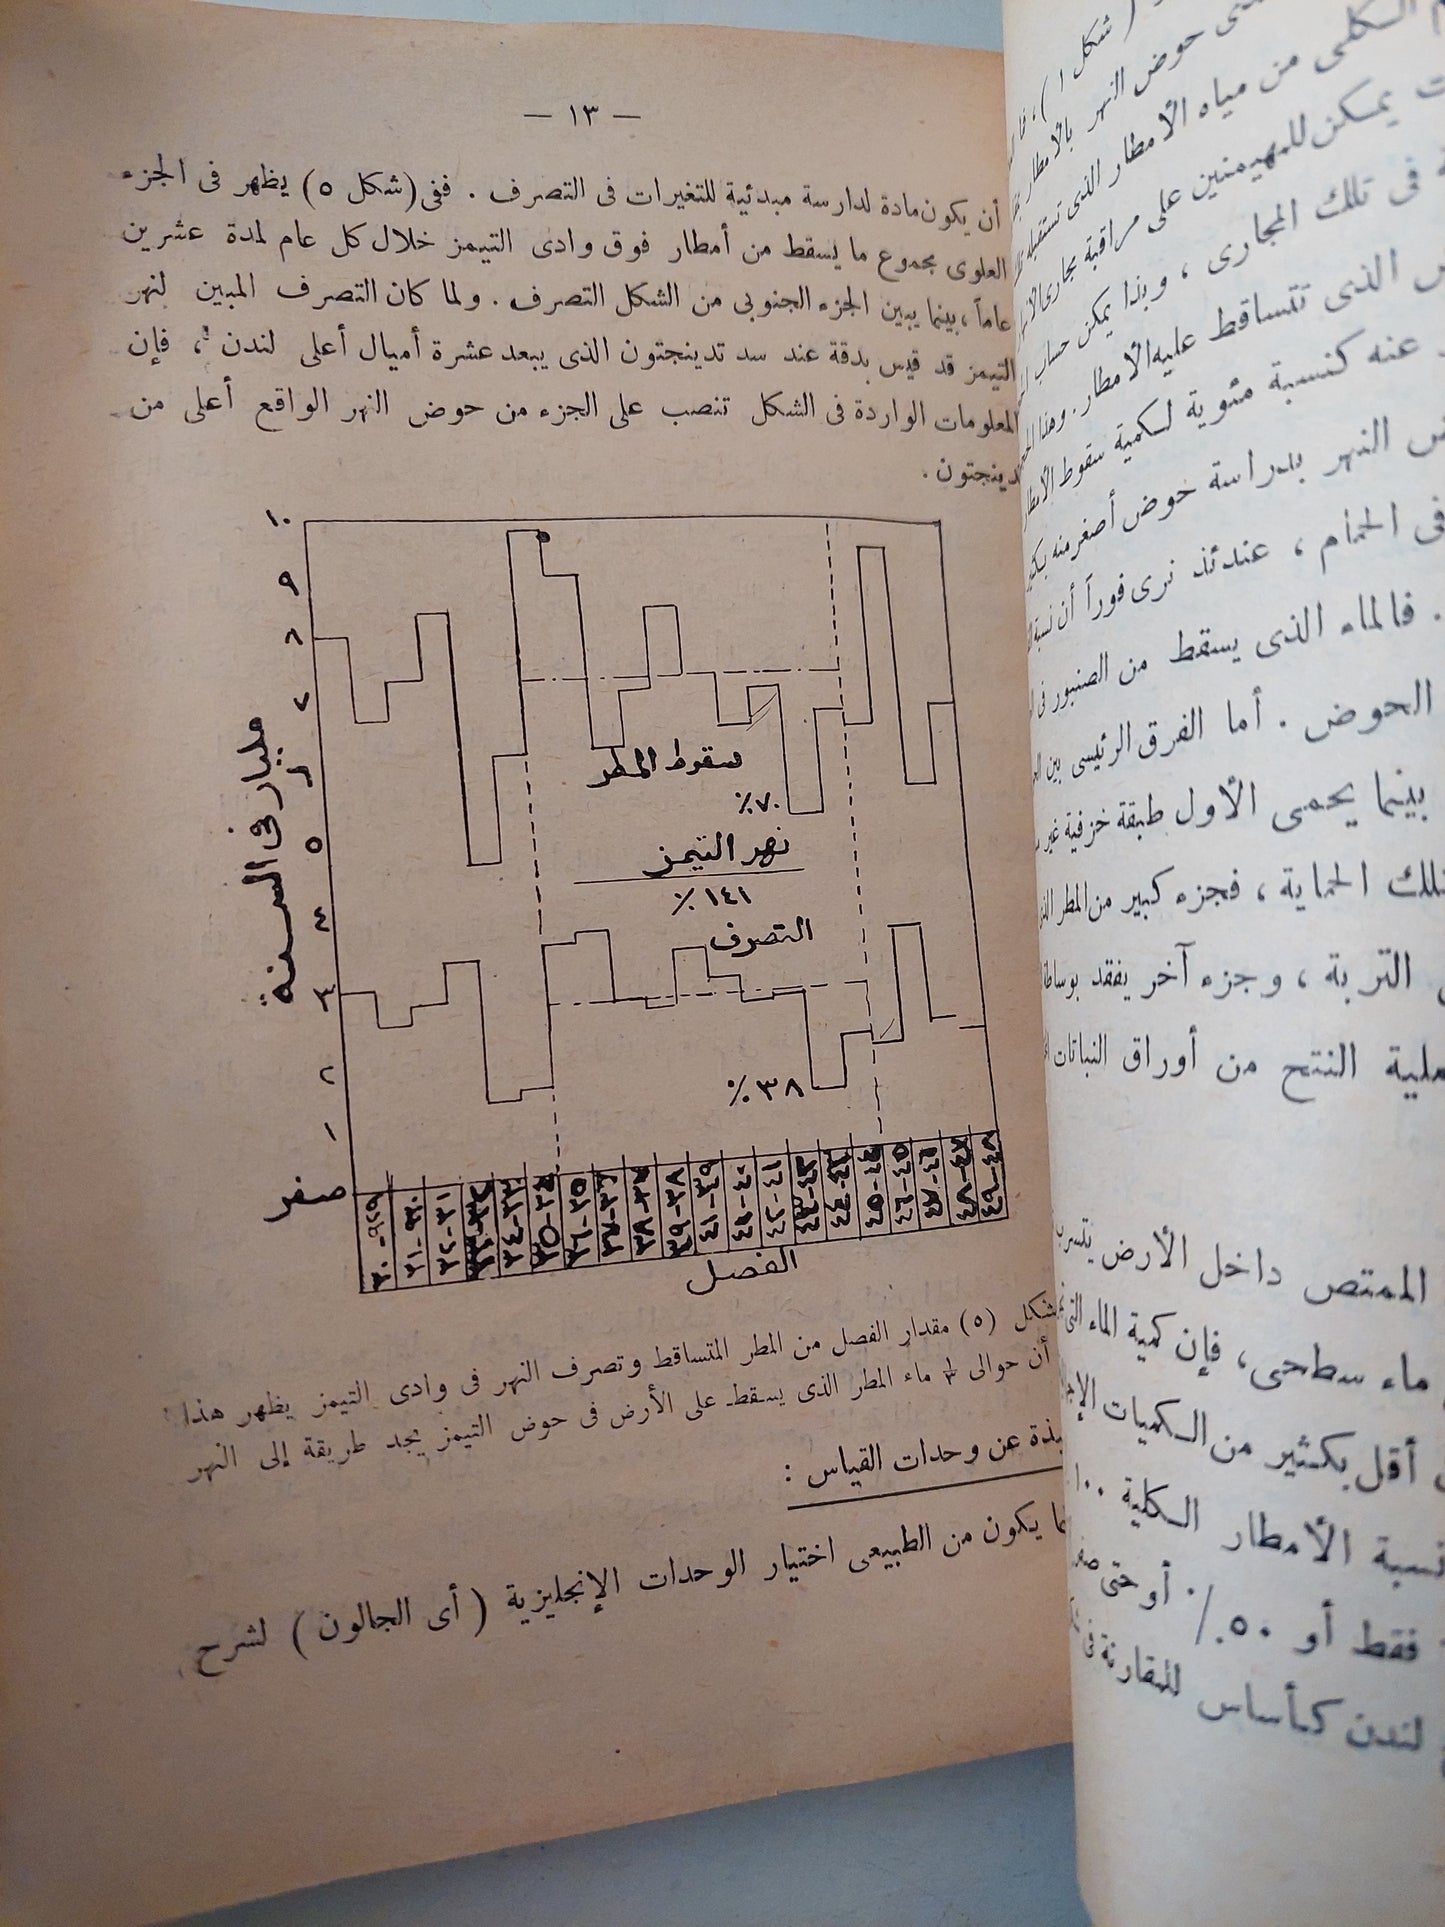 — ١٣ —
أن يكون مادة لدارسة مبدئية للتغيرات فى التصرف . ففى (شكل ٥) يظهر فى الجزء
العلوى مجموع ما يسقط من أمطار فوق وادى التيمز خلال كل عام لمدة عشرين
عاماً ، بينما يبين الجزء الجنوبى من الشكل التصرف . ولما كان التصرف المبين لنهر
التيمز قد قيس بدقة عند سد تدينجتون الذى يبعد عشرة أميال أعلى لندن ، فإن
المعلومات الواردة فى الشكل تنصب على الجزء من حوض النهر الواقع أعلى من
دينجتون .
١٠
٩
٨
٧
٥
٤
٣
٢
١
صفر
مليار فى السنة
سقوط المطر
٧٠٪
نهر التيمز
١٤١ ٪
التصرف
٣٨٪
٩٢٩-٣٠
٣١-٣٢
٣٥-٣٦
٣٨-٣٩
٤١-٤٢
٤٥-٤٦
٤٨-٤٩
الفصل
شكل (٥) مقدار الفصل من المطر المتساقط وتصرف النهر فى وادى التيمز يظهر هذا
أن حوالى ⅓ ماء المطر الذى يسقط على الأرض فى حوض التيمز يجد طريقة إلى النهر
بذة عن وحدات القياس :
ما يكون من الطبيعى اختيار الوحدات الإنجليزية ( أى الجالون ) لشرح
( شكل ١ )
حوض النهر بالأمطار
الكلى من مياه الأمطار الذى تستقبله
يمكن للمهيمنين على مراقبة مجارى
فى تلك المجارى ، وبذا يمكن حساب
الذى تتساقط عليه الأمطار . وهذا
عنه كنسبة مئوية لكمية سقوط الأمطار
النهر بدراسة حوض أصغر منه
فى الحمام ، عندئذ نرى فوراً أن نسبة
. فالماء الذى يسقط من الصنبور فى
الحوض . أما الفرق الرئيسى بين
بينما يحمى الأول طبقة خزفية غير
تلك الحماية ، فجزء كبير من المطر
التربة ، وجزء آخر يفقد بوساطة
عملية النتح من أوراق النباتات
الممتص داخل الأرض يتسرب
ماء سطحى ، فإن كمية الماء التى
أقل بكثير من الكميات
نسبة الأمطار الكلية ١٠٠
فقط أو ٥٠٪ أو حتى
لندن كأساس للمقارنة فى